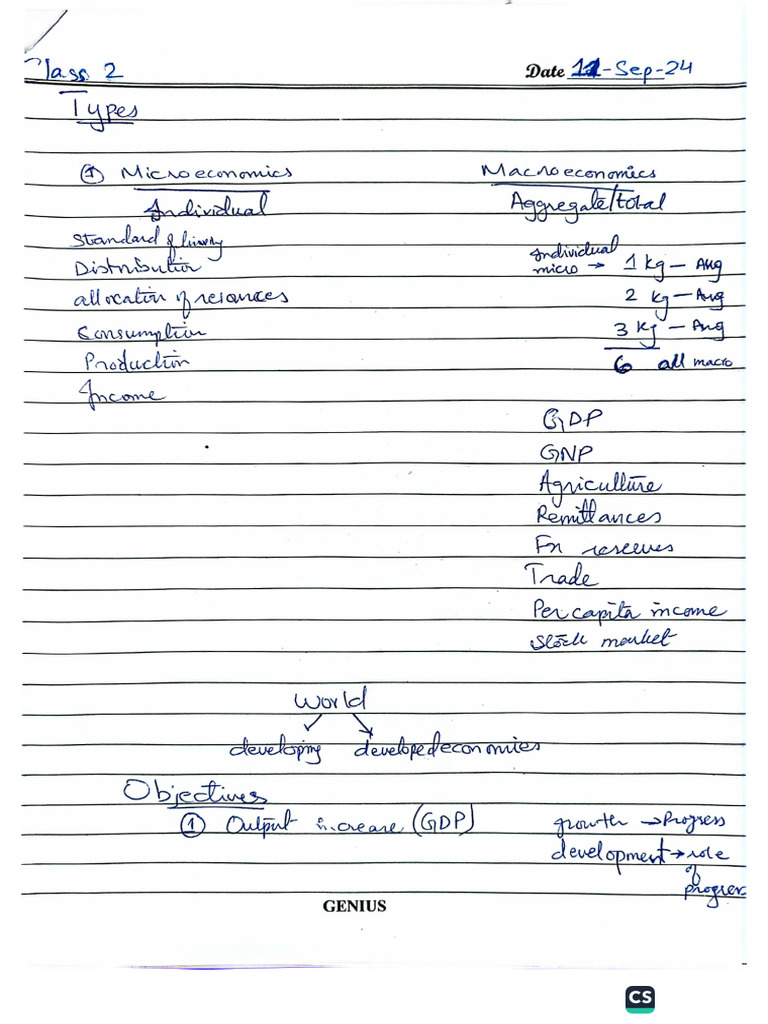 Class 2 Date 11-Sep-24
Types
① Microeconomics Macroeconomics
Individual Aggregate/total
Standard of living
Individual
Distribution micro → 1 kg – Aug
allocation of resources 2 kg – Aug
Consumption 3 kg – Aug
Production 6 all macro
Income
GDP
GNP
Agriculture
Remittances
Fn reserves
Trade
Per capita income
Stock market
World
developing developed economies
Objectives
① Output increase (GDP) growth → Progress
development → role
of
progress
GENIUS
CS